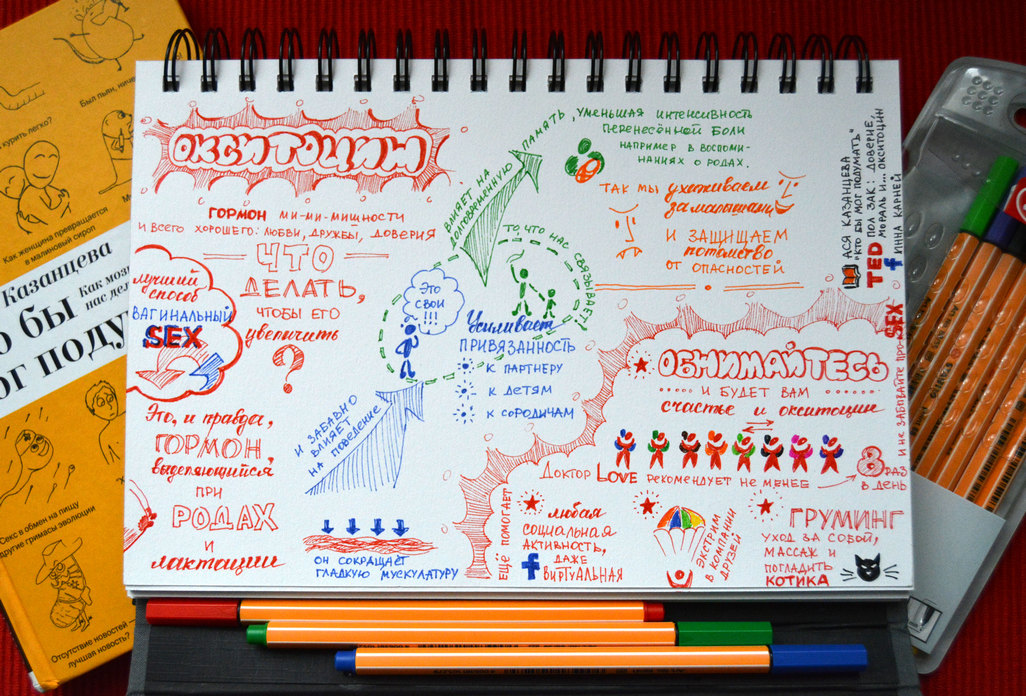 ОКСИТОЦИН
ГОРМОН МИ-МИ-МИШНОСТИ
И ВСЕГО ХОРОШЕГО: ЛЮБВИ, ДРУЖБЫ, ДОВЕРИЯ
ЧТО
ДЕЛАТЬ,
ЧТОБЫ ЕГО
увеличить
?
лучший
способ
ВАГИНАЛЬНЫЙ
SEX
Это, и правда,
ГОРМОН
выделяющийся
ПРИ
РОДАХ
И
лактации
И ЗАБАВНО
ВЛИЯЕТ
НА ПОВЕДЕНИЕ
ОН СОКРАЩАЕТ
ГЛАДКУЮ МУСКУЛАТУРУ
ЭТО
СВОИ
!!!
ТО, ЧТО НАС СВЯЗЫВАЕТ!
Усиливает
ПРИВЯЗАННОСТЬ
К ПАРТНЕРУ
К ДЕТЯМ
К СОРОДИЧАМ
ВЛИЯЕТ НА
ДОЛГОВРЕМЕННУЮ ПАМЯТЬ,
УМЕНЬШАЯ ИНТЕНСИВНОСТЬ
ПЕРЕНЕСЁННОЙ БОЛИ
НАПРИМЕР В ВОСПОМИ-
НАНИЯХ О РОДАХ.
ТАК МЫ ухаживаем
за малышами
И ЗАЩИЩАЕМ
потомство
ОТ ОПАСНОСТЕЙ
АСЯ КАЗАНЦЕВА
"КТО БЫ МОГ ПОДУМАТЬ"
TED ПОЛ ЗАК: ДОВЕРИЕ,
МОРАЛЬ И... ОКСИТОЦИН
f ИННА КАРНЕЙ
ОБНИМАЙТЕСЬ
И БУДЕТ ВАМ
счастье и окситоцин
ДОКТОР LOVE РЕКОМЕНДУЕТ НЕ МЕНЕЕ
8 РАЗ
В ДЕНЬ
И НЕ ЗАБЫВАЙТЕ ПРО SEX
ЕЩЁ ПОМОГАЕТ
любая
СОЦИАЛЬНАЯ
АКТИВНОСТЬ,
ДАЖЕ
f ВИРТУАЛЬНАЯ
ЭКСТРИМ
В КОМПАНИИ
ДРУЗЕЙ
ГРУМИНГ
УХОД ЗА СОБОЙ,
МАССАЖ И
ПОГЛАДИТЬ
КОТИКА
Был пьян, ниче
курить легко?
Как женщина превращается
в малиновый сироп
Казанцева
о бы
Как мозг
нас дел
ог поду
Секс в обмен на пищу
другие гримасы эволюции
Отсутствие новостей —
лучшая новость?